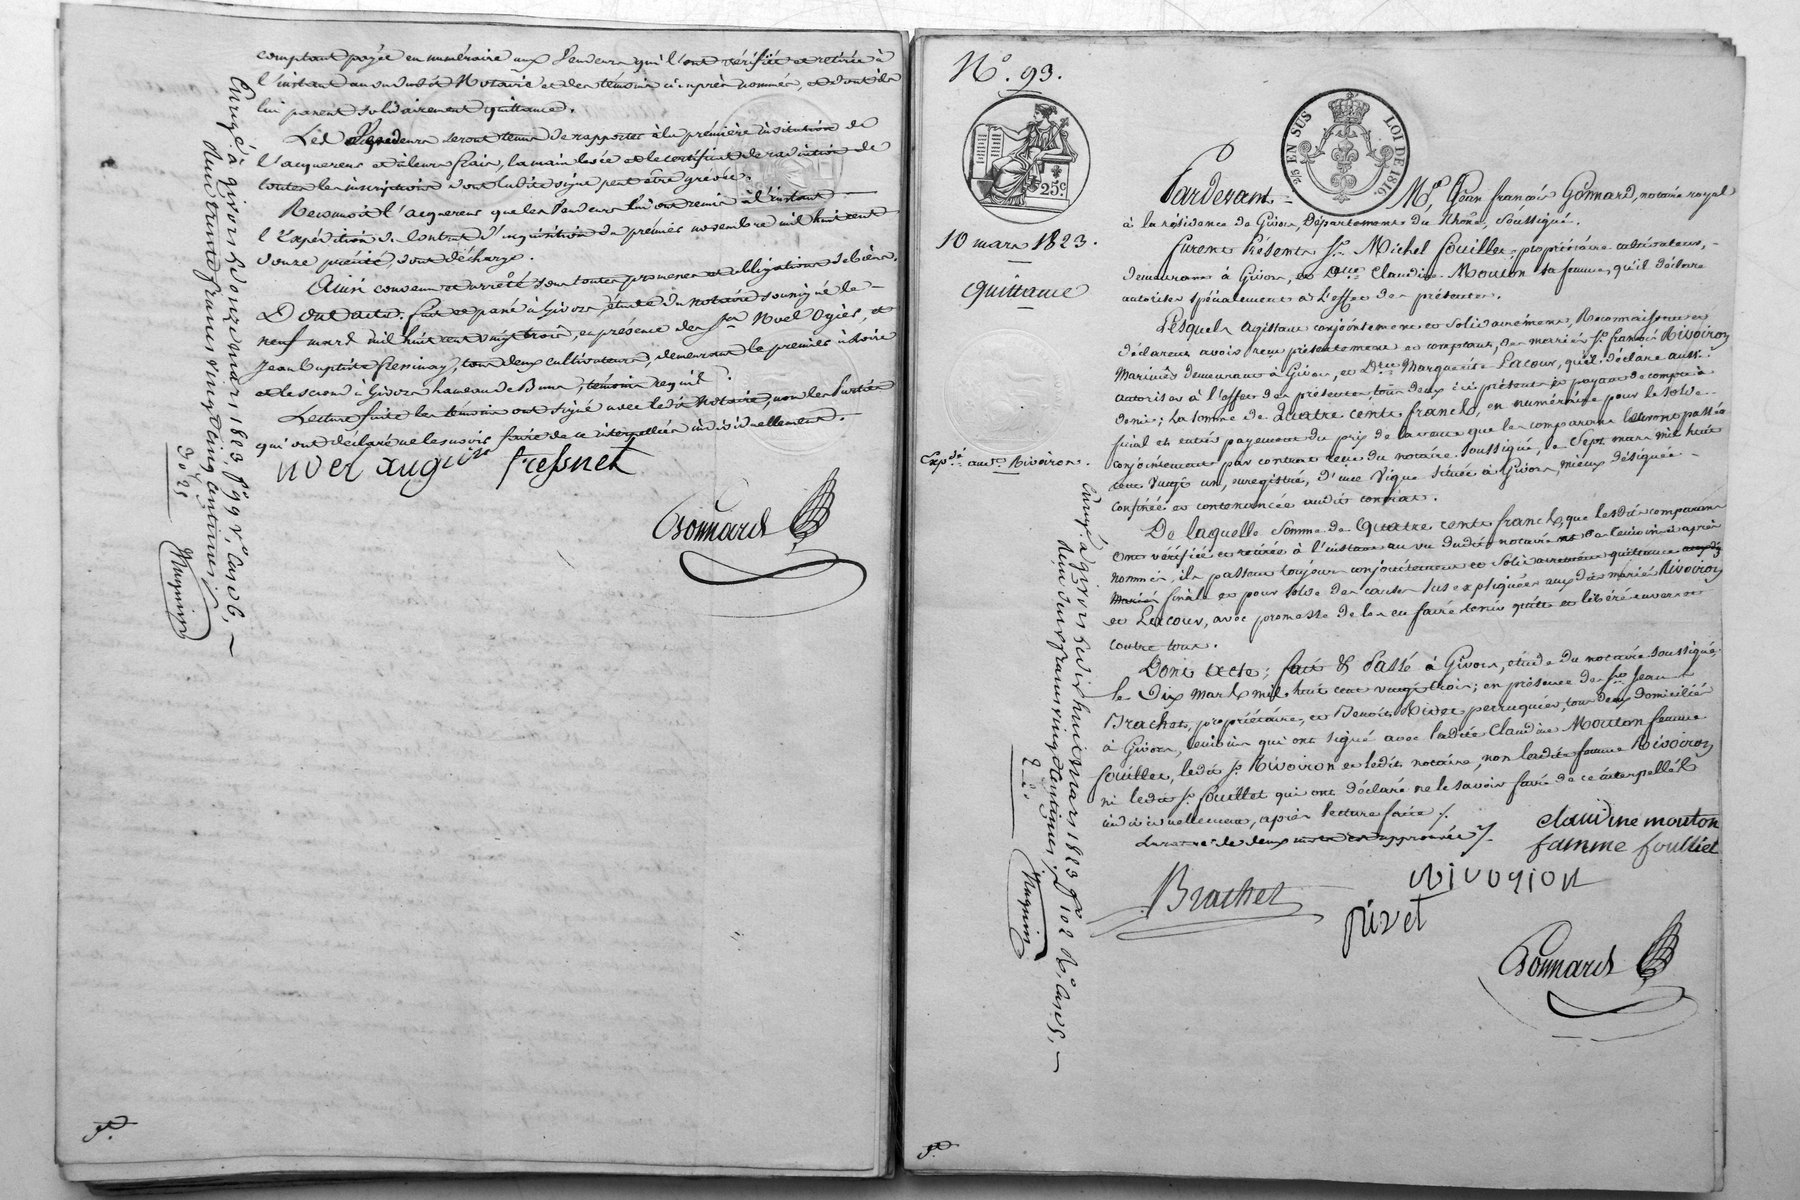 comptant payée en numéraire aux Vendeurs qui l'ont vérifiée et retirée à
l'instant au vu dudit Notaire et des témoins ci après nommés, et dont ils
lui passent solidairement quittance.
Les d. Vendeurs seront tenus de rapporter à la première réquisition de
l'acquereur et à leurs frais, la main levée et le certificat de radiation de
toutes les inscriptions dont ladite vigne peut être grevée.
Reconnoit l'acquereur que les Vendeurs lui ont remis à l'instant
l'Expédition du Contrat d'acquisition du premier novembre mil huit cent
douze précité, dont décharge.
Ainsi convenu et arrêté sous toutes promesses et obligations de biens.
Dont acte. fait et passé à Givors, étude du notaire soussigné le
neuf mars mil huit cent vingt trois, en présence des Srs Noel Ogier, et
Jean Baptiste tous deux cultivateurs, demeurant le premier à
et le second à Givors hameau de Bans, témoins requis.
Lecture faite les témoins ont signé avec ledit Notaire, non les Parties
qui ont déclaré ne le savoir faire de ce interpellées individuellement.
Gonnard
Enregé à givors le douze mars 1823 fo 99 vo case 6,
deux francs vingt cinq centimes
No. 93.
25c
25 EN SUS
LOI DE 1816
10 mars 1823.
Quittance
Expdé. aud. Rivoiron.
Pardevant Me. Jean françois Gonnard, notaire royal
à la résidence de Givors, Département du Rhône, soussigné.
furent Présents Sr. Michel fouillet, propriétaire cultivateur,
demeurant à Givors, et Dme Claudine Mouton sa femme, qu'il déclare
autoriser spécialement à l'effet des présentes.
Lesquels agissant conjointement et solidairement, Reconnaissent et
déclarent avoir reçu présentement et comptant, des mariés Sr. françois Rivoiron
Marinier demeurant à Givors, et Dme Marguerite Lacour, qu'il déclare aussi
autoriser à l'effet des présentes, tous deux ici présents et payant de compte à
demi; la somme de Quatre cents francs, en numéraire pour le solde
final et entier payement du prix de la vente que les comparants leur ont passée
conjointement par contrat reçu du notaire soussigné, le Sept mars mil huit
cent vingt un, enregistré, d'une Vigne située à Givors, mieux désignée
confinée et contenancée audit contrat.
De laquelle somme de Quatre cents francs, que lesdits comparants
ont vérifiée et retirée à l'instant au vu dudit notaire et de témoins après
nommés, ils passent toujours conjointement et solidairement quittance
finale et pour solde des causes sus expliquées auxdits mariés Rivoiron
et Lacour, avec promesse de les en faire tenir quitte et libéré envers et
contre tous.
Dont acte; fait & Passé à Givors, étude du notaire soussigné,
le Dix mars mil huit cent vingt trois; en présence des Srs Jean
Brachet, propriétaire, et Benoit Rivet perruquier, tous deux domiciliés
à Givors, témoins qui ont signé avec ladite Claudine Mouton femme
fouillet, ledit Sr. Rivoiron et ledit notaire, non ladite femme Rivoiron
ni ledit Sr. fouillet qui ont déclaré ne le savoir faire de ce interpellés
individuellement, après lecture faite /.
claudine mouton
famme foulliet
Brachet
Rivoyron
rivet
Gonnard
Enregé à givors le dix huit mars 1823 fo 102 Ro case 5,
deux francs vingt centimes